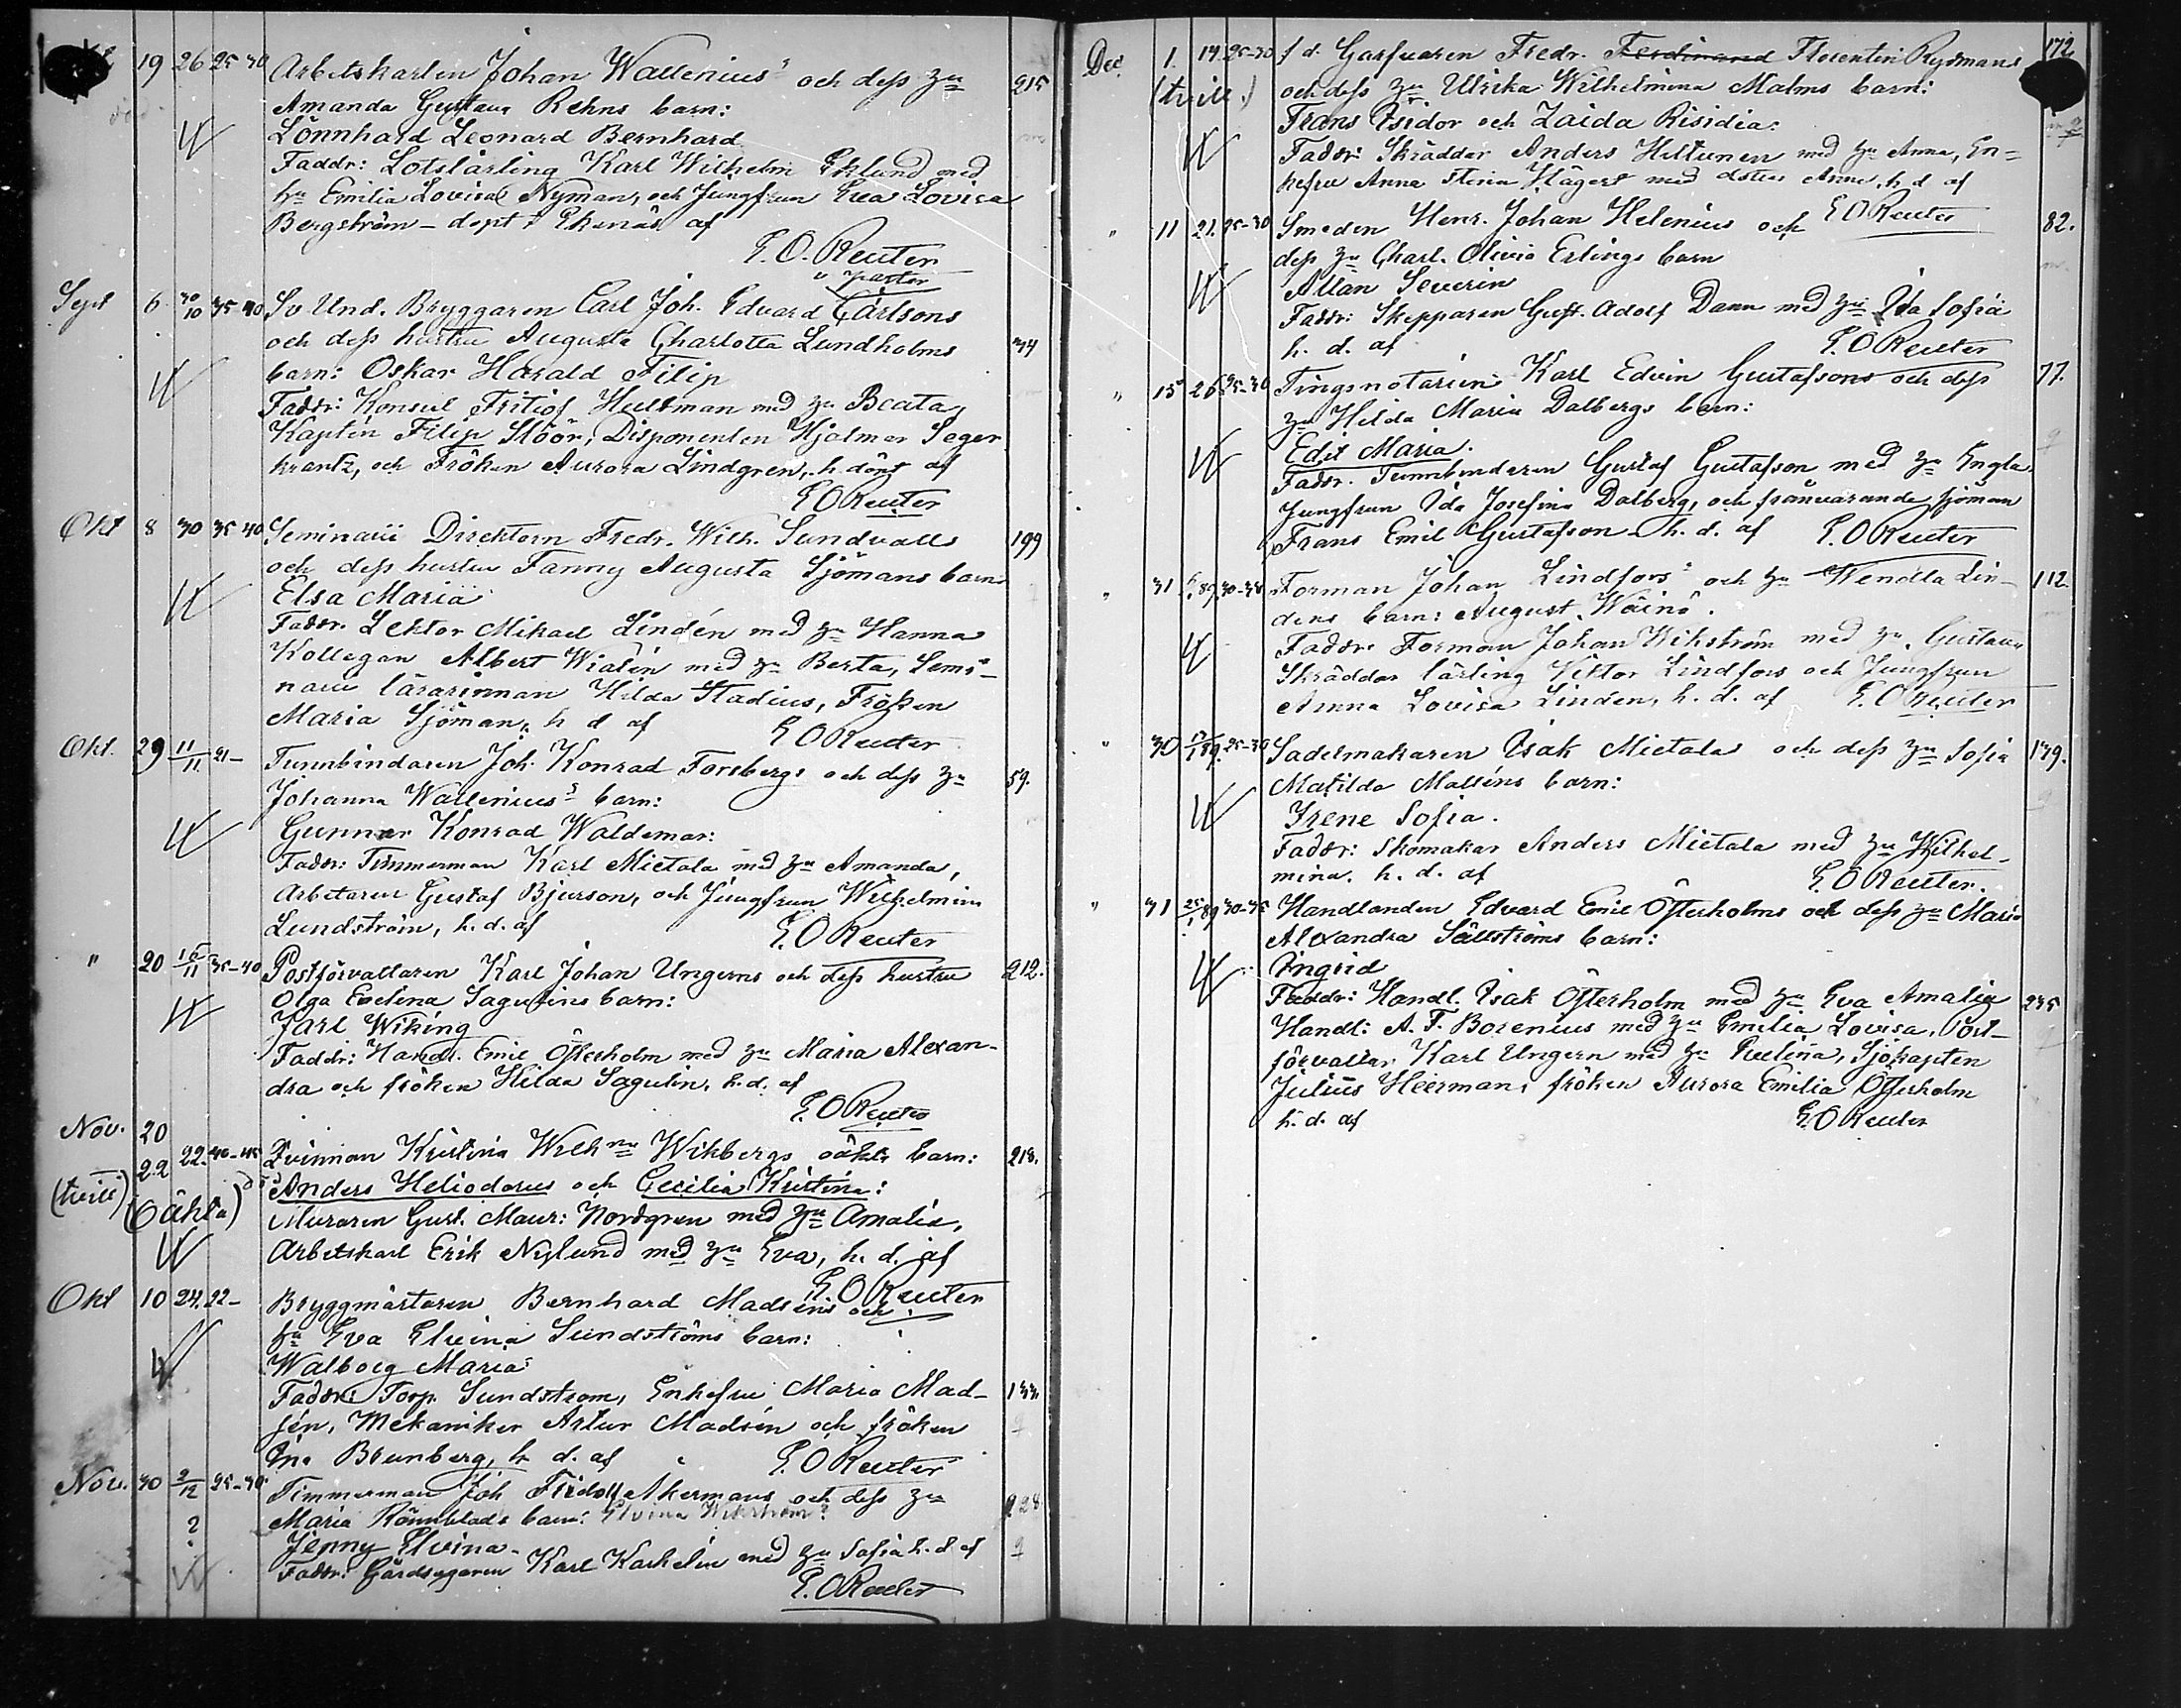 19 26 25-30 Arbetskarlen Johan Wallenius' och dess hu 215
Amanda Gustava Rehns barn:
Lönnhard Leonard Bernhard
Faddr: Lotslärling Karl Wilhelm Eklund med
hu Emilia Lovisa Nyman, och Jungfrun Eva Lovisa
Bergström – döpt i Ekenäs af
E. O. Reuter
pastor
Sept 6 30/10 35-40 Sv Und. Bryggaren Carl Joh. Edvard Carlsons
och dess hustru Augusta Charlotta Lundholms 34
barn: Oskar Harald Filip
Faddr: Konsul Fritiof Hultman med hu Beata,
Kaptén Filip Stöör, Disponenten Hjalmar Seger
krantz, och Fröken Aurora Lindgren, h. döpt af
E O Reuter
Okt 8 30 35-40 Seminarii Direktorn Fredr. Wilh. Sundvalls 199
och dess hustru Fanny Augusta Sjömans barn
Elsa Maria
Faddr. Lektor Mikael Lindén med hu Hanna
Kollegan Albert Wialén med hu Berta, Semi-
narii lärarinnan Hilda Stadius, Fröken
Maria Sjöman, h d af E O Reuter
Okt. 29 11/11 21- Tunnbindaren Joh. Konrad Forsbergs och dess hu 59.
Johanna Wallenius' barn:
Gunnar Konrad Waldemar:
Faddr: Timmerman Karl Mietala med hu Amanda,
Arbetaren Gustaf Bjurson, och Jungfrun Wilhelmina
Lundström, h. d. af E. O Reuter
" 20 15/11 35-40 Postförvaltaren Karl Johan Ungerns och dess hustru 212.
Olga Evelina Sagulins barn:
Jarl Wiking
Faddr: Handl. Emil Österholm med hu Maria Alexan-
dra och fröken Hilda Sagulin, h. d. af
E. O Reuter
Nov. 20
22 22. 40-45 Qvinnan Kristina Wilhna Wikbergs oäkta barn: 218.
(tvill) (oäkta) Anders Heliodorus och Cecilia Kristina:
Muraren Gust. Maur: Nordgren med hu Amalia,
Arbetskarl Erik Nylund med hu Eva, h. d. af
E O Reuter
Okt 10 24. 22- Bryggmästaren Bernhard Madsens och
hu Eva Elvina Sundströms barn:
Walborg Maria
Faddr: Torp. Sundstrom, Enkefru Maria Mad- 133.
sén, Mekaniker Artur Madsén och fröken
Ina Brunberg, h d. af E. O Reuter
Nov. 30 2/12 25-30 Timmerman Joh Fridolf Åkermans och dess hu
? Maria Rönnblads barn: Elvina Wikström? 228
Jenny Elvina.
Faddr: Gårdsegaren Karl Karhelin med hu Sofia h. d af
E. O Reuter
Dec. 1. 14. 25-30 f d. Garfvaren Fredr. Ferdinand Florentin Rydmans 172
(tvill.) och dess hu Ulrika Wilhelmina Malms barn:
Frans Isidor och Zaida Risidia:
Faddr: Skräddar Anders Hiltunen med hu Anna, En-
kefru Anna Stina Hägert med dotter Anna, h d af
E O Reuter
" 11 21. 25-30 Smeden Henr. Johan Helenius och 82.
dess hu Charl. Olivia Erlings barn
Allan Severin
Faddr: Skepparen Gust. Adolf Dann med hu Ida Sofia
h. d. af E. O Reuter
" 15 26 25-30 Tingsnotarien Karl Edvin Gustafsons och dess 77.
hu Hilda Maria Dalbergs barn:
Edit Maria.
Faddr. Tunnbindaren Gustaf Gustafson med hu Engla
Jungfrun Ida Josefina Dalberg, och frånvarande sjöman
Frans Emil Gustafson h. d. af E. O Reuter
" 31 89. 30-35 Forman Johan Lindfors' och hu Wendla Lin- 112.
dens barn: August Wäinö.
Faddr: Forman Johan Wikström med hu Gustava
Skräddar lärling Viktor Lindfors och Jungfrun
Anna Lovisa Linden, h. d. af E. O Reuter
" 30 89. 25-30 Sadelmakaren Isak Mietala och dess hu Sofia 139.
Matilda Malléns barn:
Irene Sofia.
Faddr: Skomakar Anders Mietala med hu Wilhel-
mina. h. d. af E. O Reuter.
" 31 25/1 89 30-35 Handlanden Edvard Emil Österholms och dess hu Maria
Alexandra Sällströms barn:
Ingrid
Faddr: Handl. Isak Österholm med hu Eva Amalia 235
Handl: A. F. Borenius med hu Emilia Lovisa, Post-
förvaltar Karl Ungern med hu Evelina, Sjökapten
Julius Heerman, fröken Aurora Emilia Österholm
h. d. af E. O Reuter